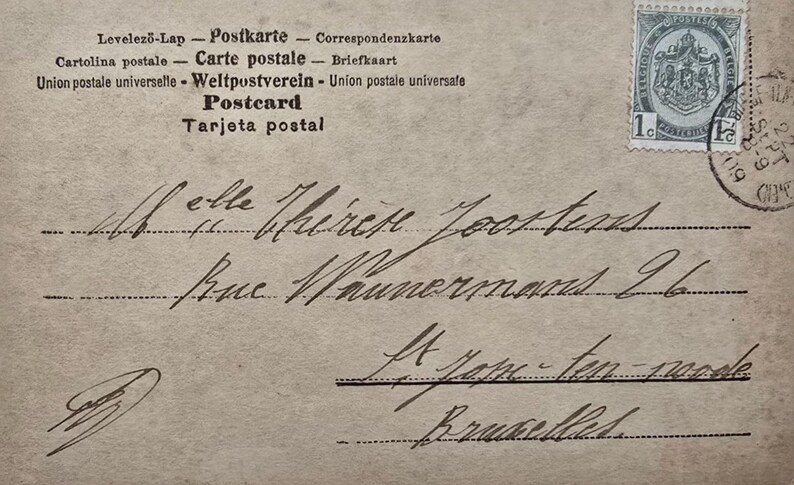 Levelező-Lap — Postkarte — Correspondenzkarte
Cartolina postale — Carte postale — Briefkaart
Union postale universelle - Weltpostverein - Union postale universale
Postcard
Tarjeta postal
POSTES
BELGIQUE BELGIË
POSTERIJEN
1c 1c
Melle Thérèse Joostens
Rue Wauwermans 26
St Josse-ten-noode
Bruxelles